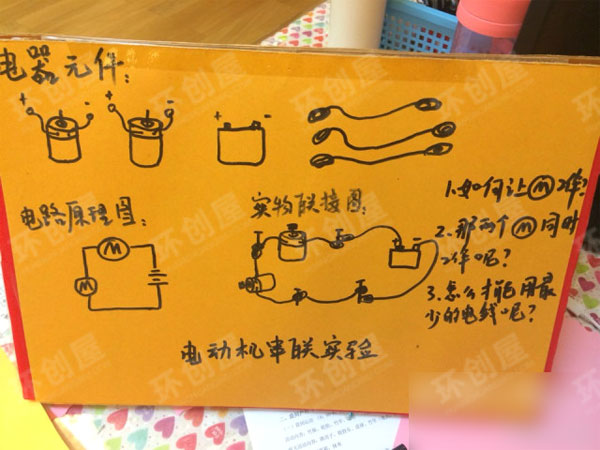 电器元件：
+ - + - + -
电路原理图：
M
M
实物联接图：
+ -
1.如何让Ⓜ工作？
2.那两个Ⓜ同时
工作呢？
3.怎么才能用最
少的电线呢？
电动机串联实验
环创屋